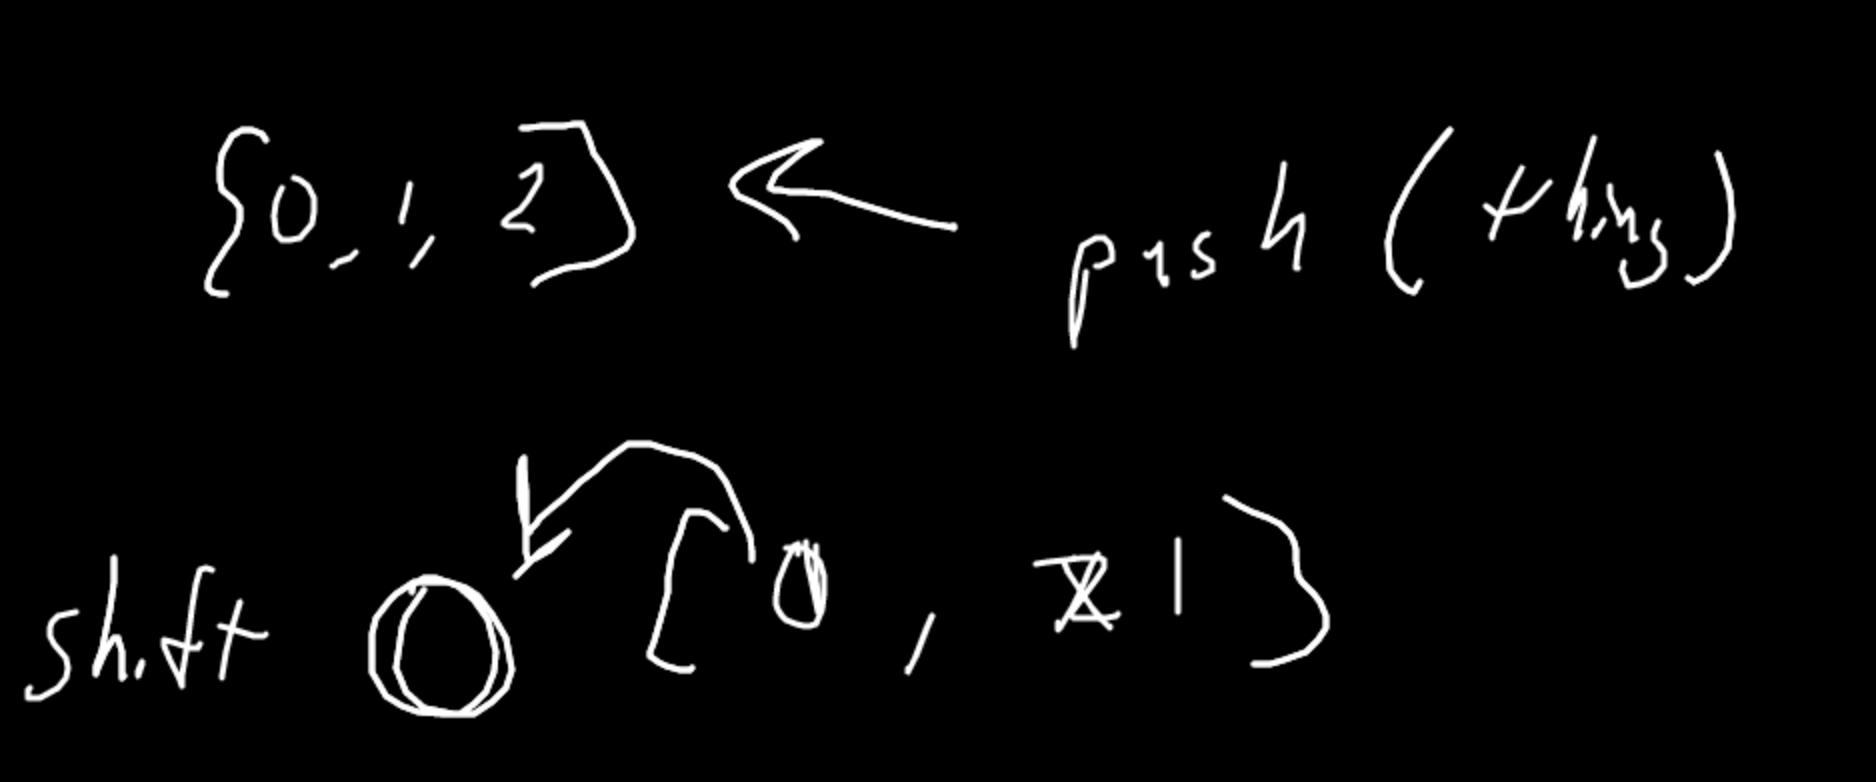 {0, 1, 2} ← push (thing)
shift 0 [0, 1}